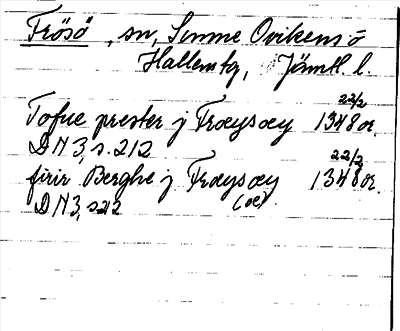 Frösö, sn, Sunne Ovikens o
Hallens tg, Jämtl. l.
22/2
Tofue prester j Frøysøy 1348 or.
DN 3, s. 212
22/2
firir Berghe j Frøysøy 1348 or.
DN 3, s 212 (oe)